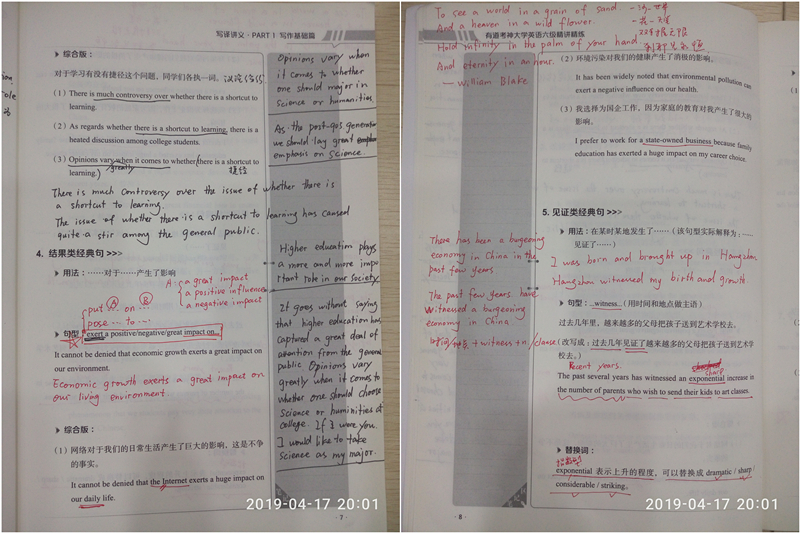 写译讲义·PART I 写作基础篇
▶ 综合版:
对于学习有没有捷径这个问题,同学们各执一词。
(1) There is much controversy over whether there is a shortcut to
learning.
(2) As regards whether there is a shortcut to learning, there is a
heated discussion among college students.
(3) Opinions vary when it comes to whether there is a shortcut to
learning.
greatly
捷径
There is much controversy over the issue of whether there is
a shortcut to learning.
The issue of whether there is a shortcut to learning has caused
quite a stir among the general public.
4. 结果类经典句 >>>
▶ 用法:……对于……产生了影响
A: a great impact
a positive influence
a negative impact
put A on B
pose ... to ...
▶ 句型:exert a positive/negative/great impact on...
It cannot be denied that economic growth exerts a great impact on
our environment.
Economic growth exerts a great impact on
our living environment.
▶ 综合版:
(1) 网络对于我们的日常生活产生了巨大的影响,这是不争
的事实。
It cannot be denied that the Internet exerts a huge impact on
our daily life.
Opinions vary when
it comes to whether
one should major in
science or humanities.
As the post-90s generation
we should lay great
emphasis on science.
Higher education plays
a more and more impo
rtant role in our society
It goes without saying
that higher education has
captured a great deal of
attention from the general
public. Opinions vary
greatly when it comes to
whether one should choose
science or huminities at
college. If I were you,
I would like to take
science as my major.
2019-04-17 20:01
· 7 ·
To see a world in a grain of sand.
And a heaven in a wild flower.
有道考神大学英语六级精讲精练
Hold infinity in the palm of your hand
And eternity in an hour.
— William Blake
(2) 环境污染对我们的健康产生了消极的影响。
It has been widely noted that environmental pollution can
exert a negative influence on our health.
(3) 我选择为国企工作,因为家庭的教育对我产生了很大的
影响。
I prefer to work for a state-owned business because family
education has exerted a huge impact on my career choice.
5. 见证类经典句 >>>
▶ 用法:在某时某地发生了……(该句型实际解释为:……
见证了……)
There has been a burgeoning
economy in China in the
past few years
I was born and brought up in Hangzhou
Hangzhou witnessed my birth and growth.
The past few years have
witnessed a burgeoning
economy in China
+ witness + n / clause
▶ 句型:...witness...(用时间和地点做主语)
过去几年里,越来越多的父母把孩子送到艺术学校去。
(改写成:过去几年见证了越来越多的父母把孩子送到艺术学
校去。)
Recent years
sharp
The past several years has witnessed an exponential increase in
the number of parents who wish to send their kids to art classes.
▶ 替换词:
exponential 表示上升的程度,可以替换成 dramatic / sharp /
considerable / striking。
2019-04-17 20:01
· 8 ·